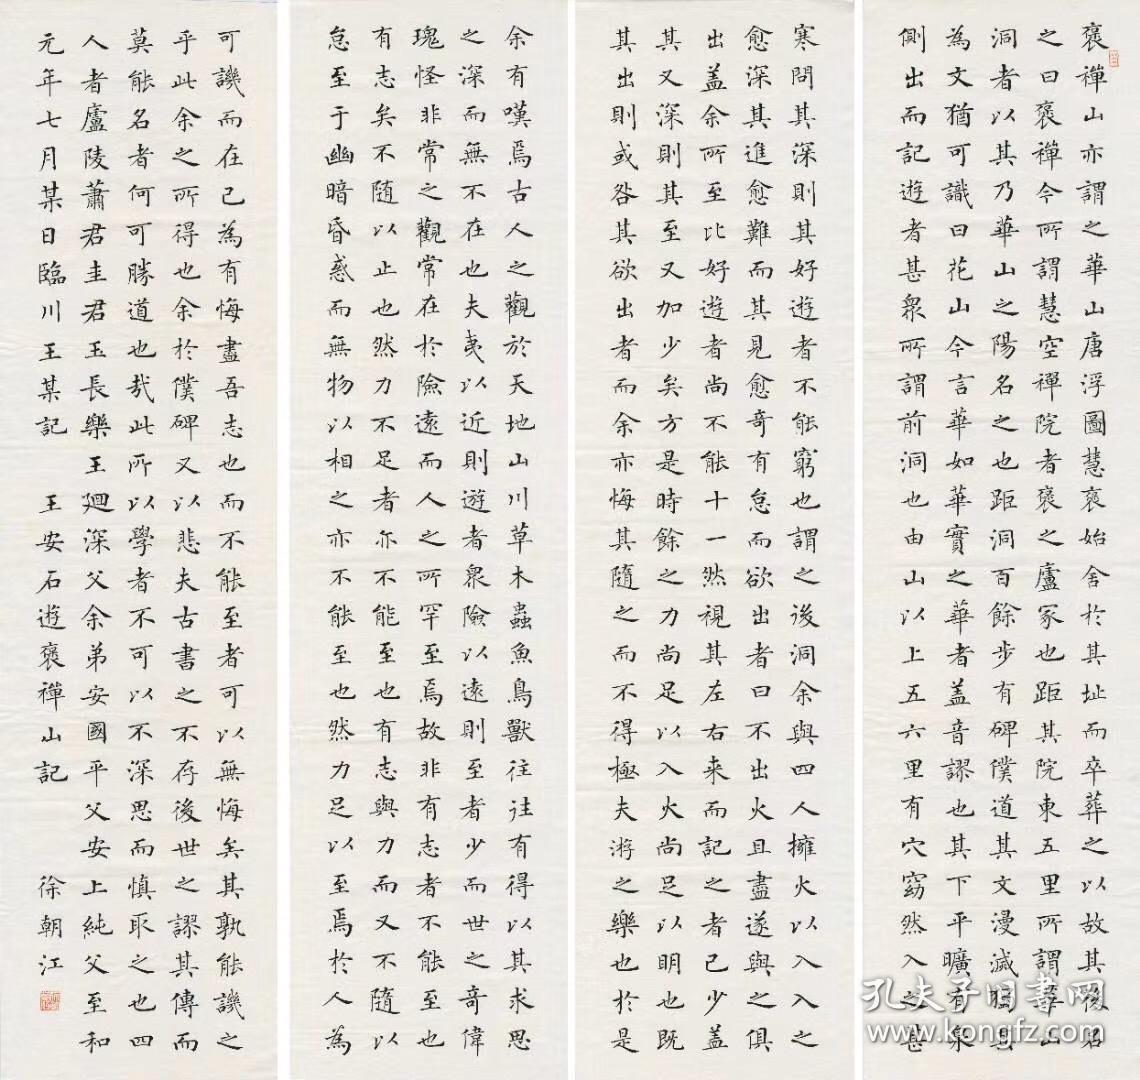 褒禪山亦謂之華山唐浮圖慧褒始舍於其址而卒葬之以故其後名
之曰褒禪今所謂慧空禪院者褒之廬冢也距其院東五里所謂華山
洞者以其乃華山之陽名之也距洞百餘步有碑僕道其文漫滅獨其
為文猶可識曰花山今言華如華實之華者盖音謬也其下平曠有泉
側出而記遊者甚眾所謂前洞也由山以上五六里有穴窈然入之甚
寒問其深則其好遊者不能窮也謂之後洞余與四人擁火以入入之
愈深其進愈難而其見愈奇有怠而欲出者曰不出火且盡遂與之俱
出盖余所至比好遊者尚不能十一然視其左右来而記之者已少盖
其又深則其至又加少矣方是時餘之力尚足以入火尚足以明也既
其出則或咎其欲出者而余亦悔其隨之而不得極夫游之樂也於是
余有嘆焉古人之觀於天地山川草木蟲魚鳥獸往往有得以其求思
之深而無不在也夫夷以近則遊者眾險以遠則至者少而世之奇偉
瑰怪非常之觀常在於險遠而人之所罕至焉故非有志者不能至也
有志矣不隨以止也然力不足者亦不能至也有志與力而又不隨以
怠至于幽暗昏惑而無物以相之亦不能至也然力足以至焉於人為
可譏而在己為有悔盡吾志也而不能至者可以無悔矣其孰能譏之
乎此余之所得也余於僕碑又以悲夫古書之不存後世之謬其傳而
莫能名者何可勝道也哉此所以學者不可以不深思而慎取之也四
人者廬陵蕭君圭君玉長樂王廻深父余弟安國平父安上純父至和
元年七月某日臨川王某記 王安石遊褒禪山記 徐朝江
孔夫子旧书网
www.kongfz.com